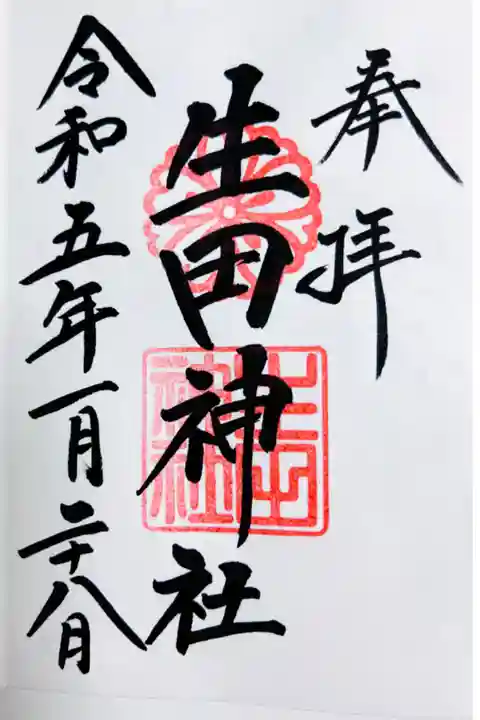 奉拝
生田神社
令和五年一月二十八日
生田
神社